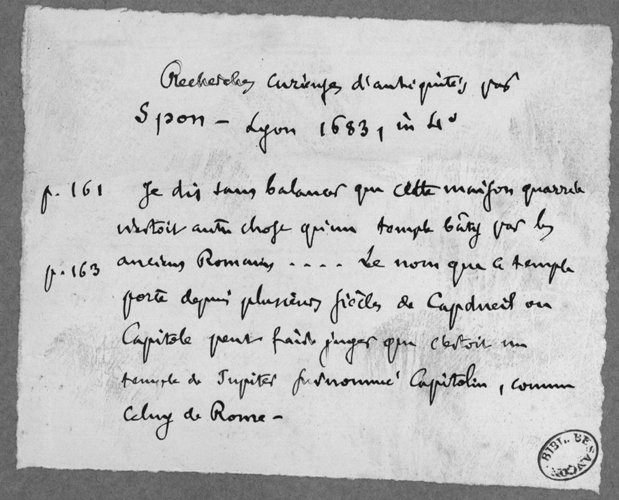 Recherches curieuses d'antiquités par
Spon – Lyon 1683, in 4º
p. 161 Je dis sans balancer que cette maison quarrée
n'estoit autre chose qu'un temple bâty par les
p. 163 anciens Romains .... Le nom que ce temple
porte depuis plusieurs siècles de Capdueil ou
Capitole peut faire juger que c'estoit un
temple de Jupiter surnommé Capitolin, comme
celuy de Rome –
BIBL. BESANÇON